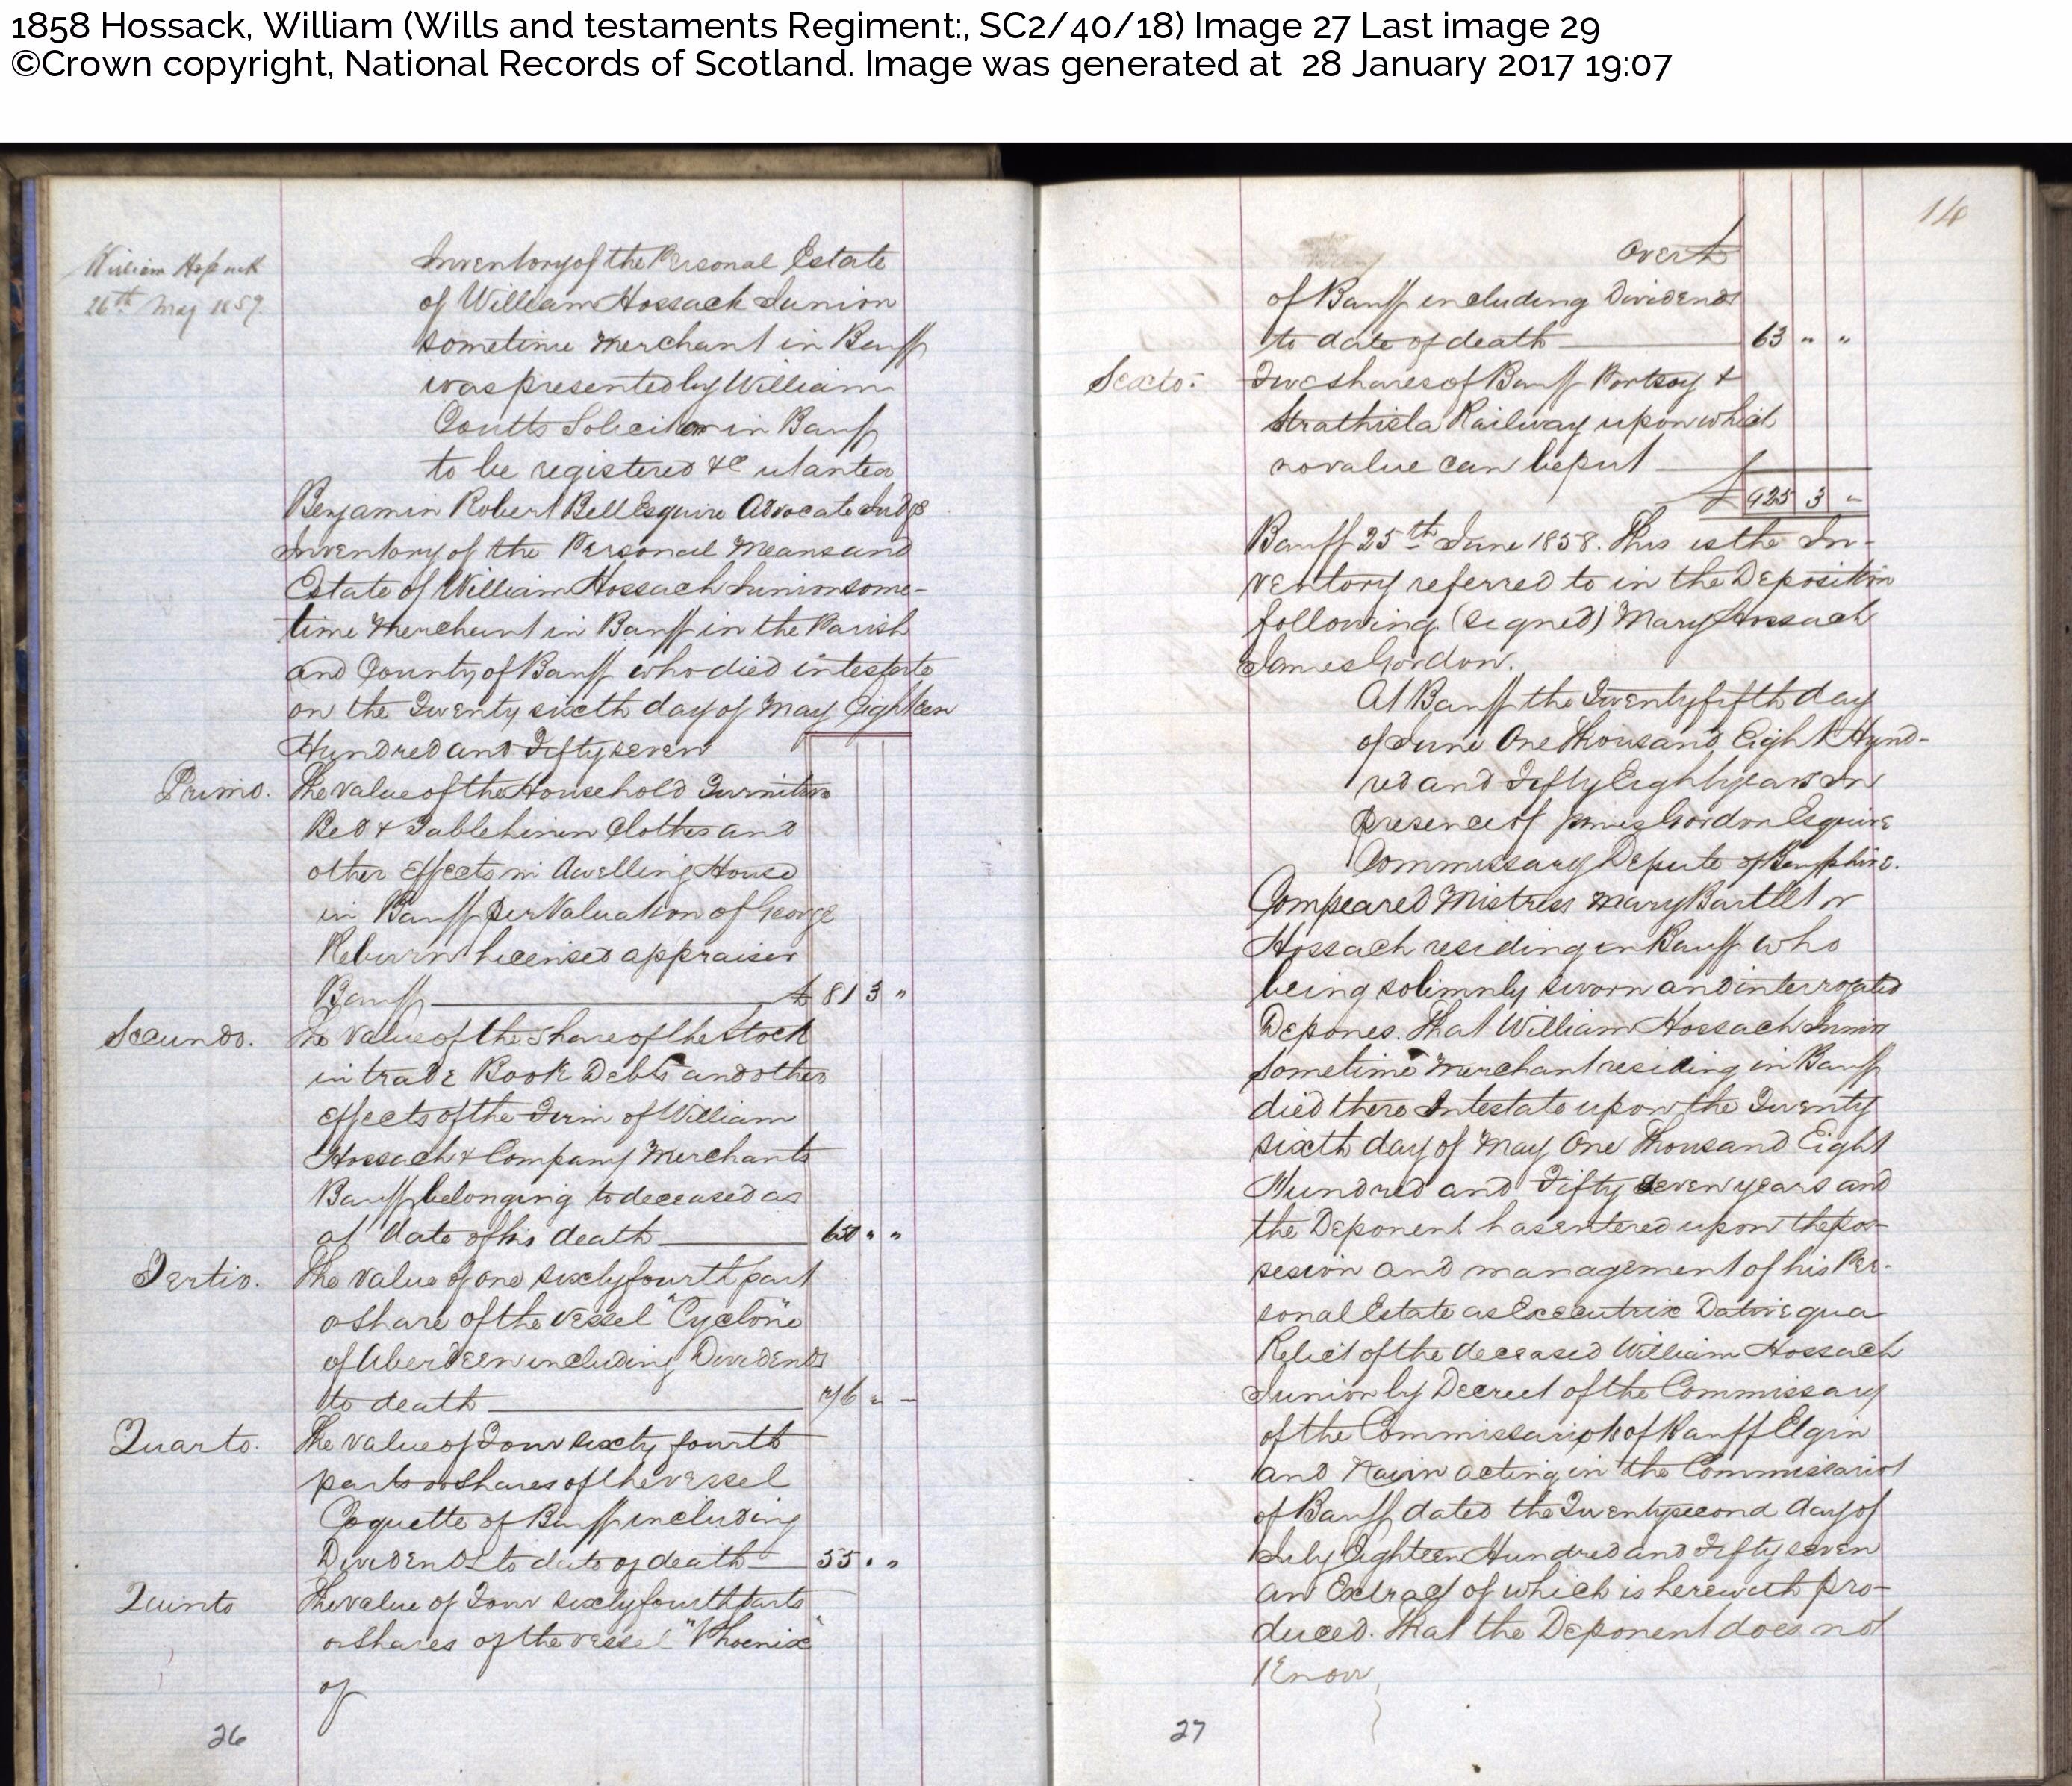 1858 Hossack, William (Wills and testaments Regiment:, SC2/40/18) Image 27 Last image 29
©Crown copyright, National Records of Scotland. Image was generated at 28 January 2017 19:07
William Hossack
26th May 1857.
Inventory of the Personal Estate
of William Hossack Junior
sometime Merchant in Banff
was presented by William
Coutts Solicitor in Banff
to be registered &c ut antea
Benjamin Robert Bell Esquire Advocate
Inventory of the Personal Means and
Estate of William Hossack Junior some-
time Merchant in Banff in the Parish
and County of Banff who died intestate
on the Twenty sixth day of May Eighteen
Hundred and Fifty seven
Primo. The value of the Household Furniture
Bed & Table linen Clothes and
other effects in dwelling House
in Banff per Valuation of George
Reburn licensed appraiser
Banff £ 81 3 "
Secundo. The value of the share of the Stock
in trade Book Debts and other
effects of the Firm of William
Hossack & Company Merchants
Banff belonging to deceased as
at date of his death 650 " "
Tertio. The value of one sixtyfourth part
or share of the vessel "Cyclone"
of Aberdeen including Dividends
to death 76 " "
Quarto. The value of Four sixty fourth
parts or shares of the vessel
Coquette of Banff including
Dividends to date of death 55 " "
Quinto The value of Four sixtyfourth parts
or shares of the vessel "Phoenix"
of
26
14
Over £
of Banff including Dividends
to date of death 63 " "
Sexto. Five shares of Banff Portsoy &
Strathisla Railway upon which
no value can be put
£ 925 3 "
Banff 25th June 1858. This is the In-
ventory referred to in the Deposition
following (signed) Mary Hossack
James Gordon.
At Banff the Twentyfifth day
of June One Thousand Eight Hund-
red and Fifty Eight years In
presence of James Gordon Esquire
Commissary Depute of Banffshire.
Compeared Mistress Mary Bartlet or
Hossack residing in Banff who
being solemnly sworn and interrogated
Depones. That William Hossack Junior
sometime Merchant residing in Banff
died there Intestate upon the Twenty
sixth day of May One Thousand Eight
Hundred and Fifty seven years and
the Deponent has entered upon the pos-
sesion and management of his Per-
sonal Estate as Executrix Dative qua
Relict of the deceased William Hossack
Junior by Decreet of the Commissary
of the Commissariot of Banff Elgin
and Nairn acting in the Commissariot
of Banff dated the Twentysecond day of
July Eighteen Hundred and Fifty seven
an Extract of which is herewith pro-
duced. That the Deponent does not
Know
27